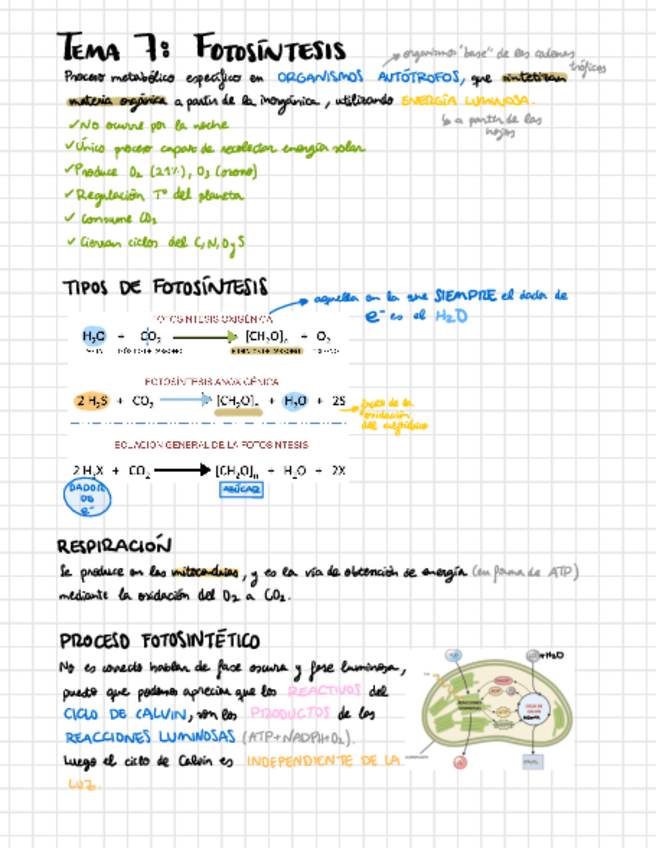 TEMA 7: FOTOSÍNTESIS
organismos "base" de las cadenas tróficas
Proceso metabólico específico en ORGANISMOS AUTÓTROFOS, que sintetizan
materia orgánica a partir de la inorgánica, utilizando ENERGÍA LUMINOSA.
a partir de las
hojas
✓ No ocurre por la noche
✓ Único proceso capaz de recolectar energía solar
✓ Produce O₂ (21%), O₃ (ozono)
✓ Regulación Tª del planeta
✓ Consume CO₂
✓ Cierran ciclos del C, N, O y S
TIPOS DE FOTOSÍNTESIS
aquella en la que SIEMPRE el dador de
e⁻ es el H₂O
FOTOSÍNTESIS OXIGÉNICA
H₂O + CO₂ → [CH₂O]ₙ + O₂
FOTOSÍNTESIS ANOXIGÉNICA
2 H₂S + CO₂ → [CH₂O]ₙ + H₂O + 2S
de la
oxidación
del
ECUACIÓN GENERAL DE LA FOTOSÍNTESIS
2 H₂X + CO₂ → [CH₂O]ₙ + H₂O + 2X
DADOR
DE
e⁻
AZÚCAR
RESPIRACIÓN
Se produce en las mitocondrias, y es la vía de obtención de energía (en forma de ATP)
mediante la oxidación del O₂ a CO₂.
PROCESO FOTOSINTÉTICO
No es correcto hablar de fase oscura y fase luminosa,
puesto que podemos apreciar que los REACTIVOS del
CICLO DE CALVIN, son los PRODUCTOS de las
REACCIONES LUMINOSAS (ATP+NADPH+O₂).
Luego el ciclo de Calvin es INDEPENDIENTE DE LA
LUZ.
+H₂O